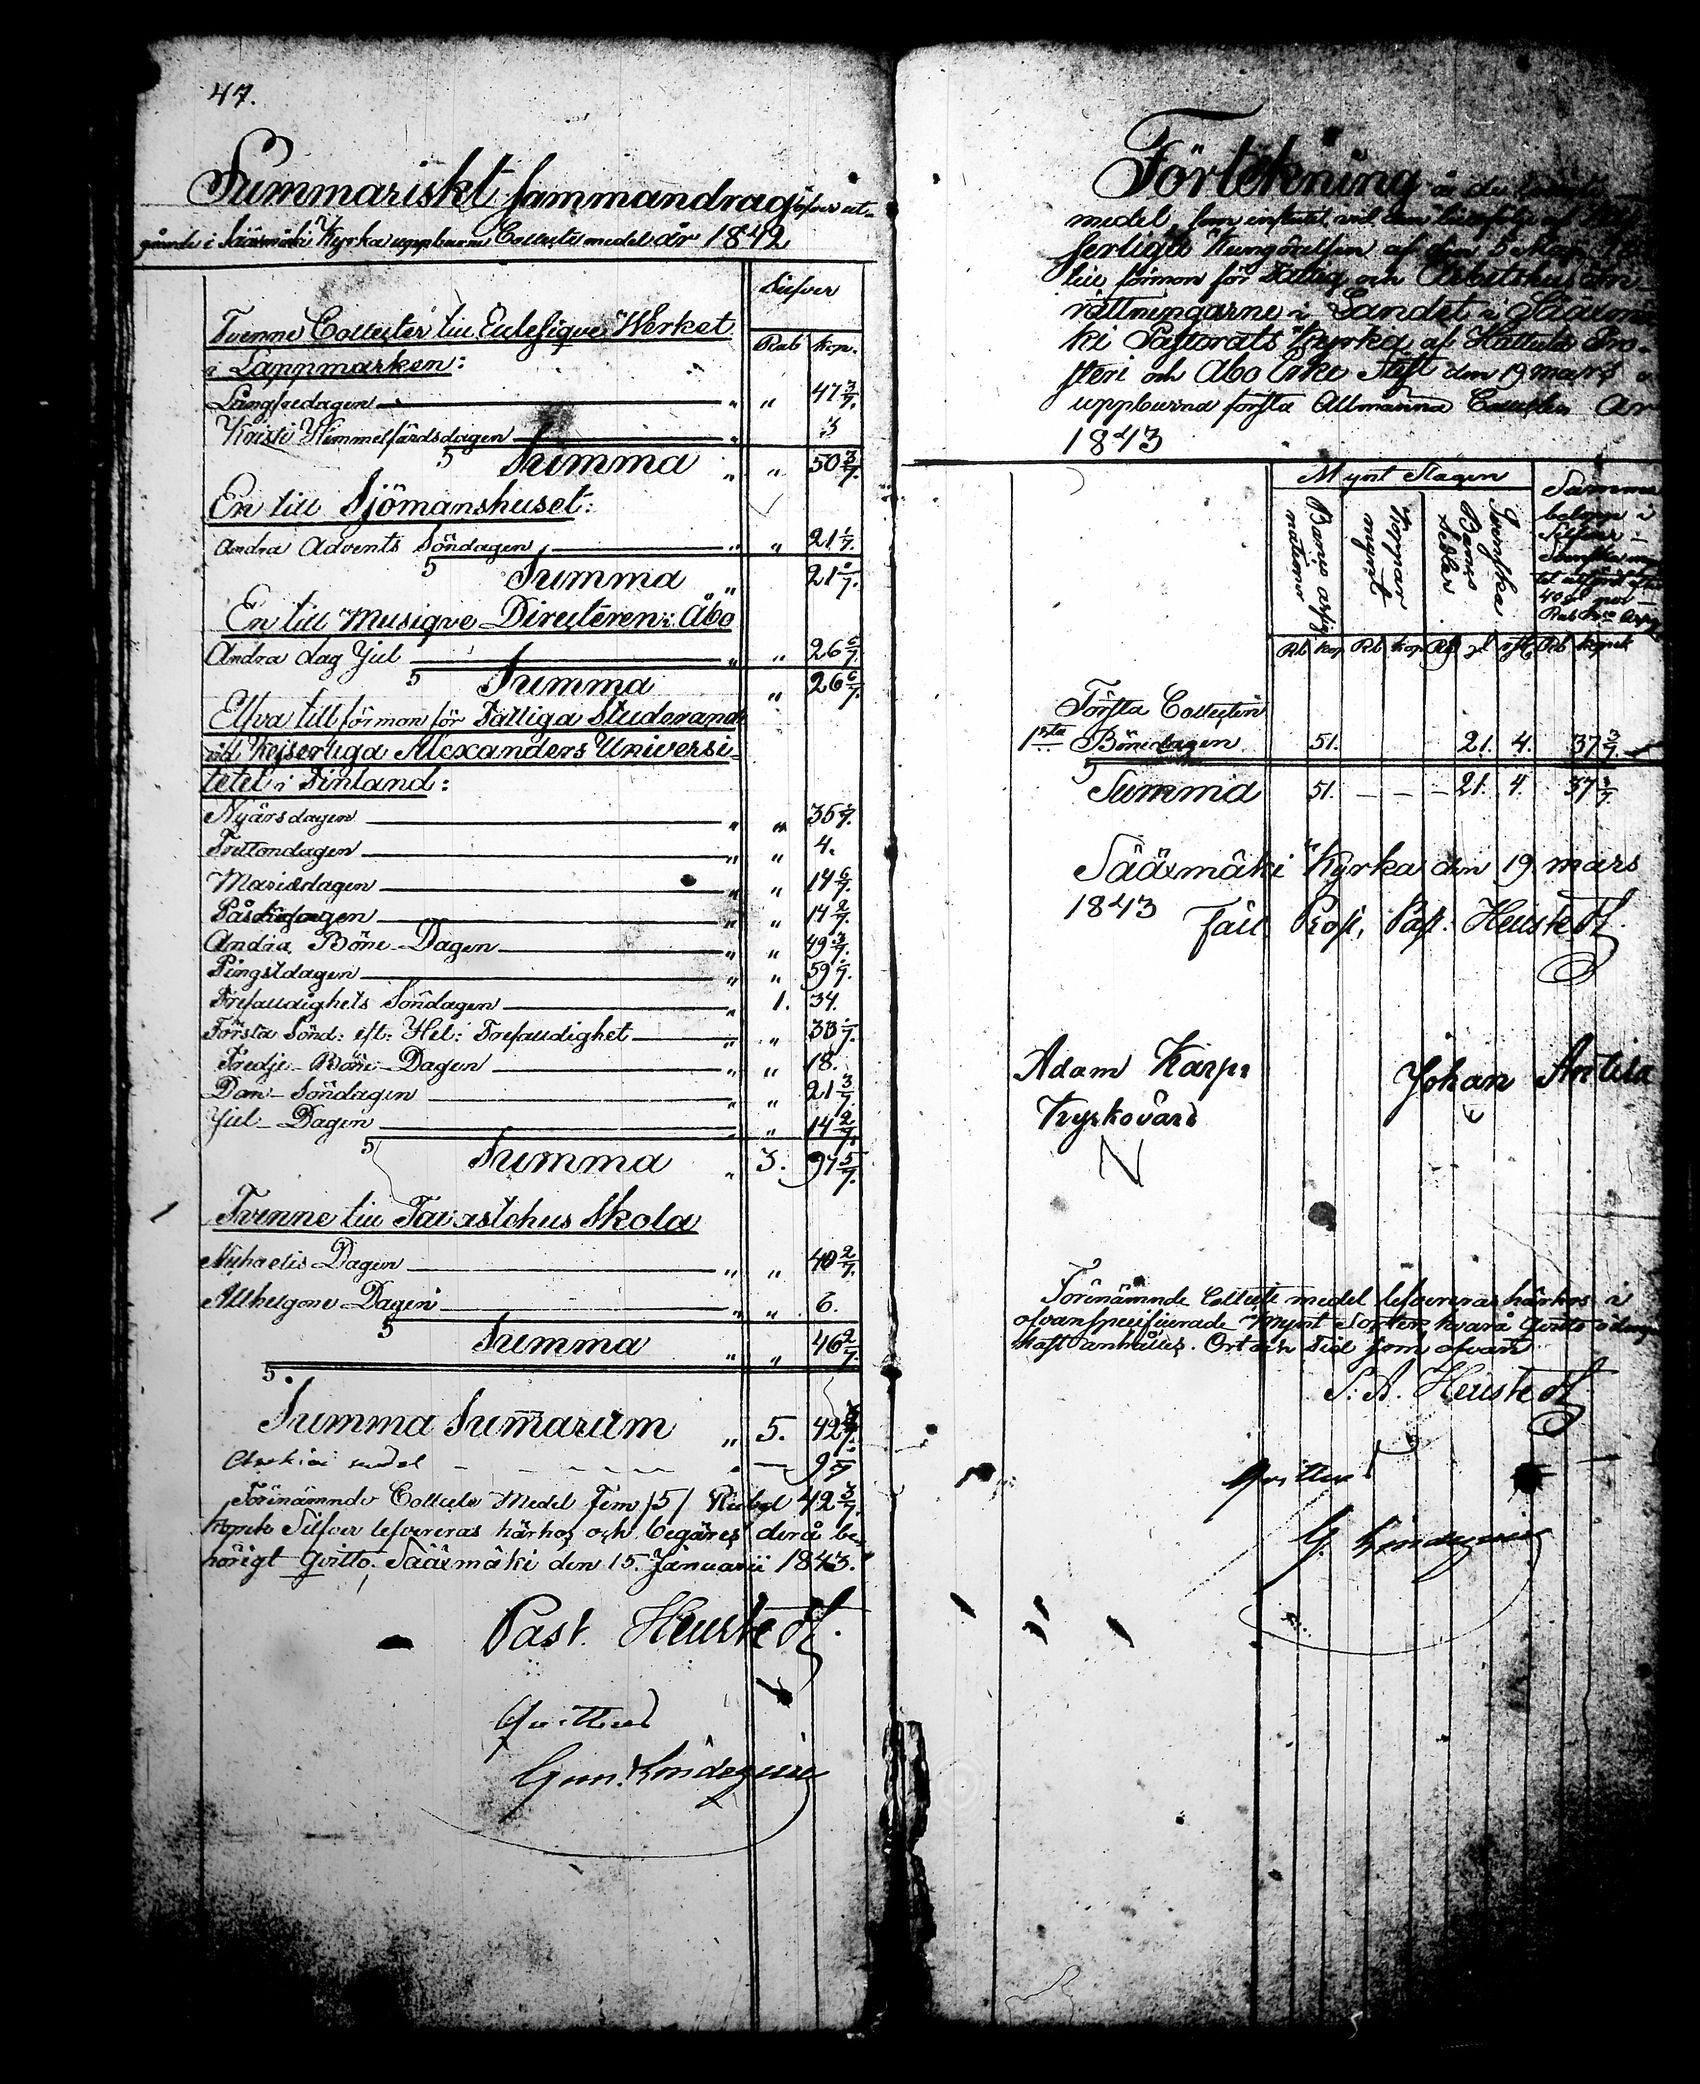 47.
Summariskt sammandrag öfver ut-
gående i Sääxmäki Kyrka uppburne Collecte medel år 1842
Silfver
Rub kop.
Tvenne Collecter till Ecclesiqve Werket
i Lappmarken:
Långfredagen " " 47 3/7.
Kristi Himmelsfärdsdagen " 3
5 Summa " " 50 3/7.
En till Sjömanshuset:
Andra Advents Söndagen " " 21 1/7.
5 Summa " 21 1/7.
En till Musiqve Directeren i Åbo
Andra dag Jul " " 26 6/7.
5 Summa " 26 6/7.
Elfva till förmon för Fattiga Studerande
vid Kejserliga Alexanders Universi-
tetet i Finland:
Nyårsdagen " " 35
Trettondagen " " 4.
Mariædagen " " 14 6/7.
Påskdagen " " 14 2/7.
Andra Böne-Dagen " " 49 3/7.
Pingstdagen " " 59
Trefaldighets Söndagen " 1. 34.
Första Sönd: eft: Hel: Trefaldighet " "
Tredje Böne-Dagen " " 18.
Dom-Söndagen " " 21 3/7
Jul-Dagen " " 14 2/7.
5 Summa " 3. 97 5/7.
Tvenne till Tavastehus Skola
Michaelis-Dagen " " 40 2/7.
Allhelgone-Dagen " " 6.
5 Summa " " 46 2/7.
5.
Summa Summarum " 5. 42
medel 9
Förenämnde Collecte Medel Fem /5/ Rubel 42 3/7.
kopek Silfver lefvereras härhos och begäres derå be-
hörigt Qvitto. Sääxmäki den 15. Januarii 1843.
Past. Heurstedt.
Qvitteras
Förtekning
medel, som influtit vid den
serliga Kungörelsen af den 5
till förmon för Fattig och Arbetshus in-
rättningarne i Landet i Sääxmä
ki Pastorats Kyrka af Hattula Pro-
steri och Åbo Erke Stift den 19 mars
uppburna första Allmänna Collecten År
1843
Mynt Slagen
Summa
belopp i
Silfver
Rub kop Rb kop Rb Rub kopek
Första Collecten
1sta Bönedagen 51. 21. 4. 37 3/7.
Summa 51. — — — 21. 4. 37 3/7.
Sääxmäki Kyrka den 19 mars
1843
Prost, Past. Heurstedt.
Adam Karpi Johan Anttila
Kyrkovärd
Förenämnde Collecte medel lefvereras härhos i
ofvanspecificerade Mynt Sorter, hvarå Qvitto ödmju
kast anhålles. Ort och Tid som ofvan
Heurstedt
Qvitteras